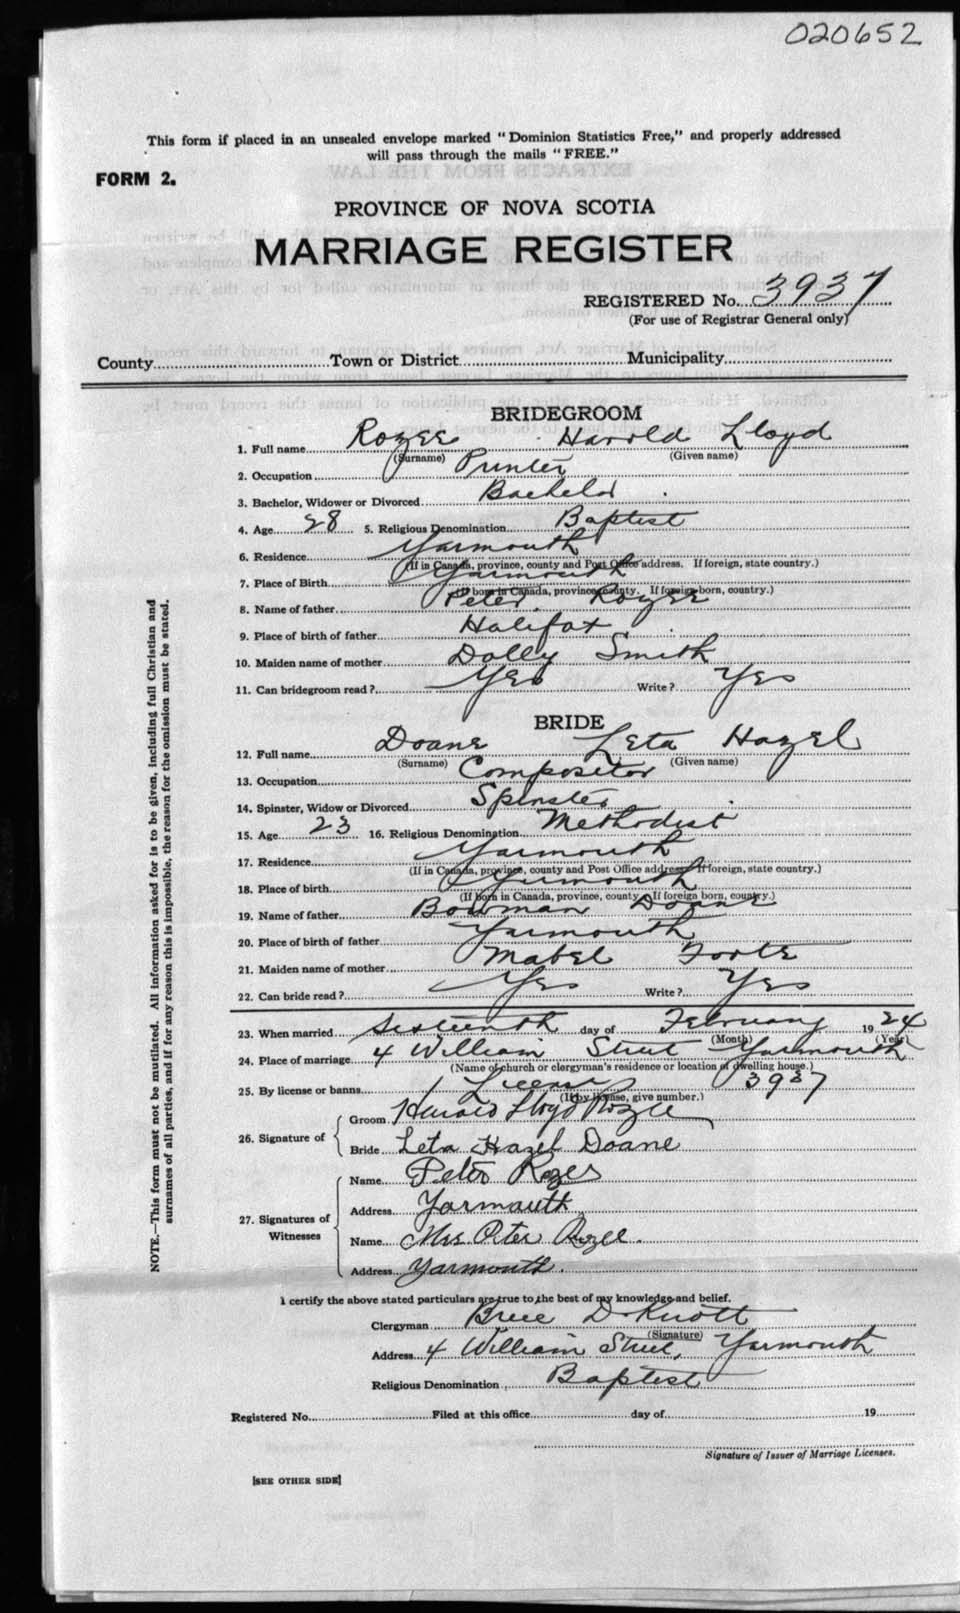 020652
This form if placed in an unsealed envelope marked "Dominion Statistics Free," and properly addressed
will pass through the mails "FREE."
FORM 2.
PROVINCE OF NOVA SCOTIA
MARRIAGE REGISTER
REGISTERED No. 3937
(For use of Registrar General only)
County Town or District Municipality
BRIDEGROOM
1. Full name Rozee Harold Lloyd
(Surname) (Given name)
2. Occupation Printer
3. Bachelor, Widower or Divorced Bachelor
4. Age 28 5. Religious Denomination Baptist
6. Residence Yarmouth
(If in Canada, province, county and Post Office address. If foreign, state country.)
7. Place of Birth Yarmouth
(If born in Canada, province, county. If foreign born, country.)
8. Name of father Peter Rozee
9. Place of birth of father Halifax
10. Maiden name of mother Dolly Smith
11. Can bridegroom read? Yes Write? Yes
BRIDE
12. Full name Doane Leta Hazel
(Surname) (Given name)
13. Occupation Compositor
14. Spinster, Widow or Divorced Spinster
15. Age 23 16. Religious Denomination Methodist
17. Residence Yarmouth
(If in Canada, province, county and Post Office address. If foreign, state country.)
18. Place of birth Yarmouth
(If born in Canada, province, county. If foreign born, country.)
19. Name of father Bowman Doane
20. Place of birth of father Yarmouth
21. Maiden name of mother Mabel Foote
22. Can bride read? Yes Write? Yes
23. When married Sixteenth day of February 1924
(Month) (Year)
24. Place of marriage 4 William Street Yarmouth
(Name of church or clergyman's residence or location of dwelling house.)
25. By license or banns License 3937
(If by license, give number.)
26. Signature of Groom Harold Lloyd Rozee
Bride Leta Hazel Doane
27. Signatures of Witnesses Name Peter Rozee
Address Yarmouth
Name Mrs Peter Rozee.
Address Yarmouth.
I certify the above stated particulars are true to the best of my knowledge and belief.
Clergyman D Knott
(Signature)
Address 4 William Street, Yarmouth
Religious Denomination Baptist
Registered No. Filed at this office day of 19
Signature of Issuer of Marriage Licenses.
[SEE OTHER SIDE]
NOTE.—This form must not be mutilated. All information asked for is to be given, including full Christian and
surnames of all parties, and if for any reason this is impossible, the reason for the omission must be stated.